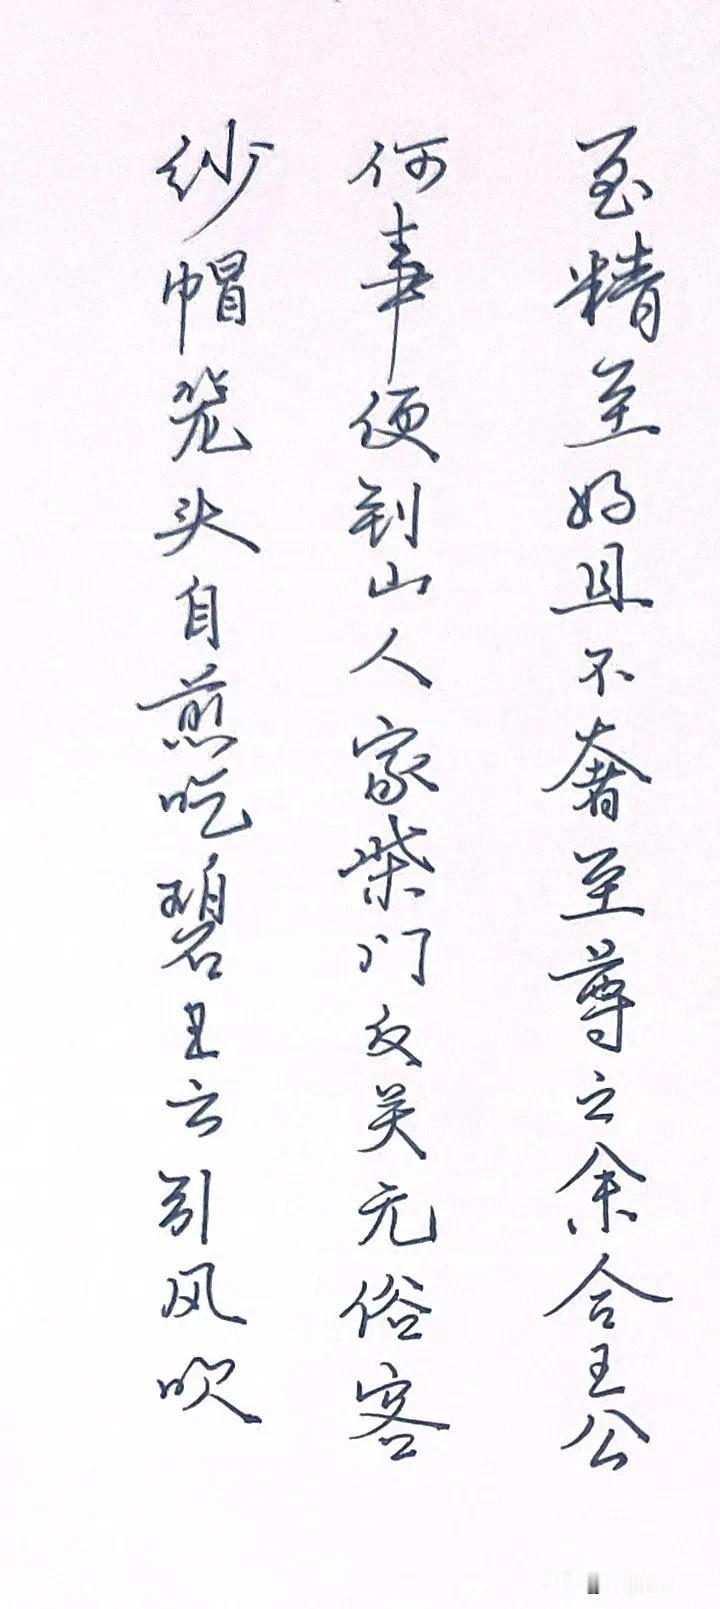 至精至好且不奢至尊之余合王公
何事便到山人家柴门反关无俗客
纱帽笼头自煎吃碧王云引风吹